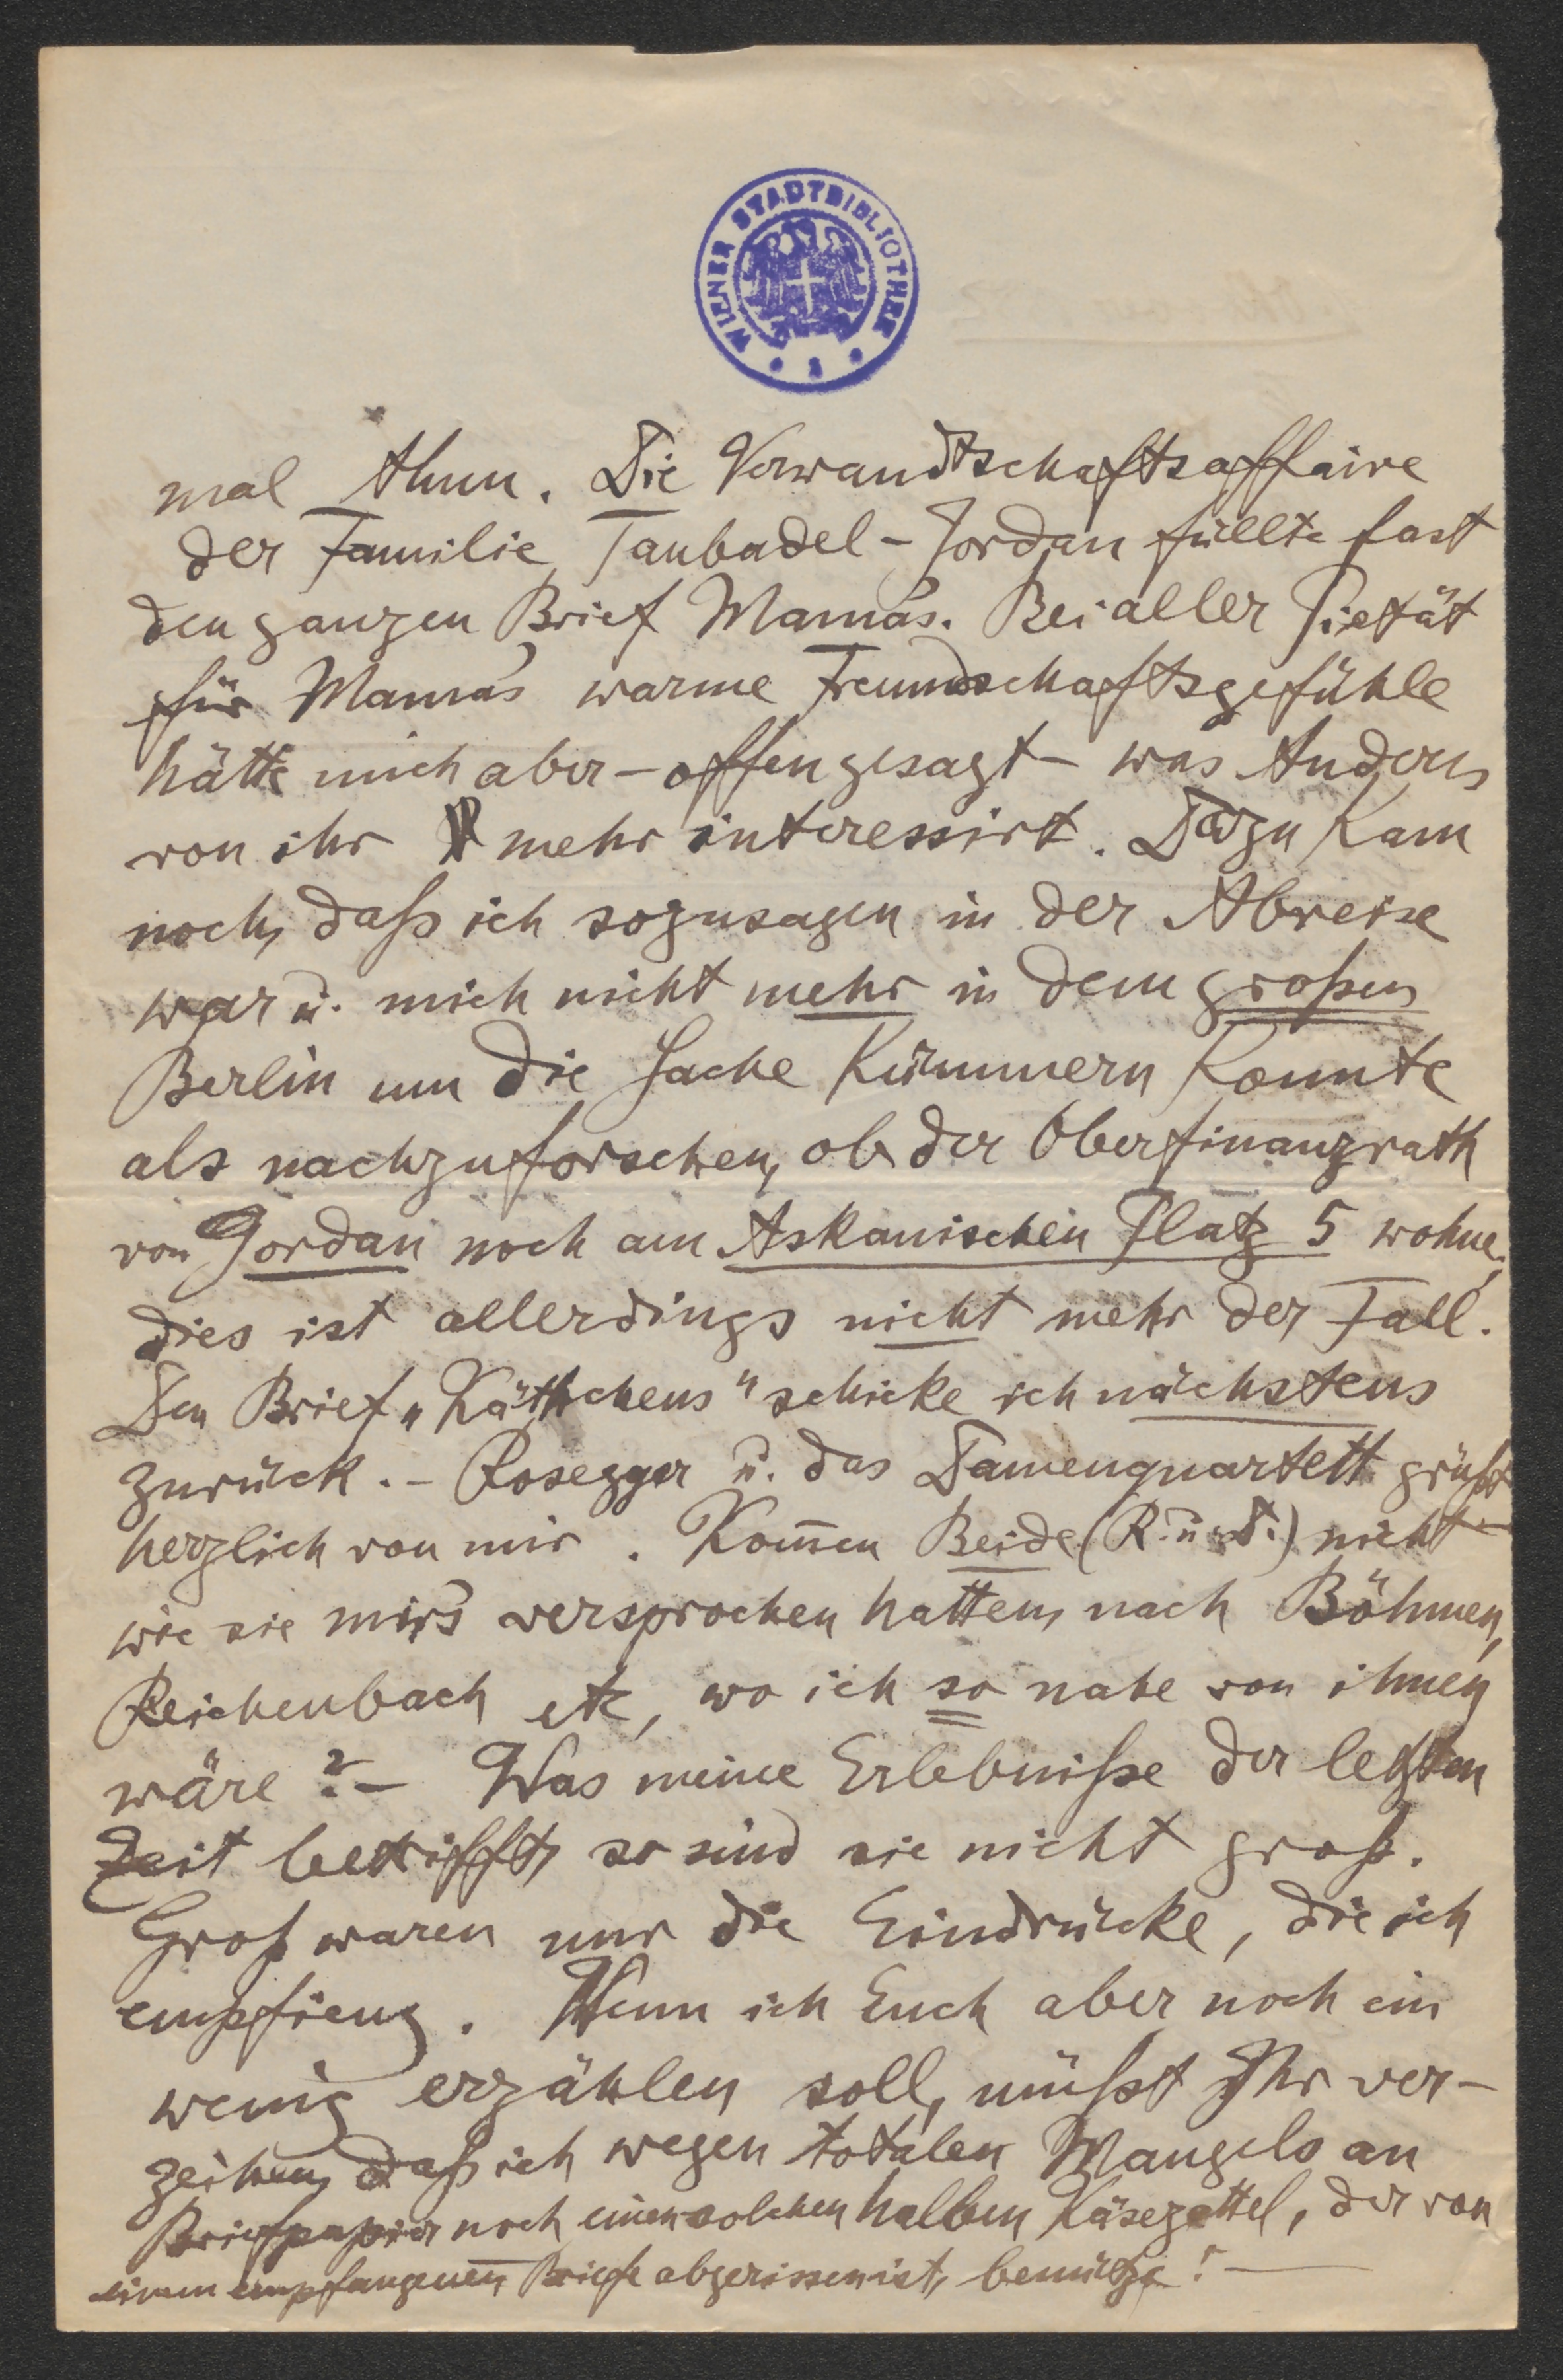 WIENER STADTBIBLIOTHEK
mal thun. Die Verwandtschaftsaffaire
der Familie Taubadel-Jordan füllte fast
den ganzen Brief Mama's. Bei aller Pietät
für Mama's warme Freundschaftsgefühle
hätte mich aber – offen gesagt – was Anderes
von ihr mehr interessirt. Dazu kam
noch, daß ich sozusagen in der Abreise
war u. mich nicht mehr in dem großen
Berlin um die Sache kümmern konnte
als nachzuforschen, ob der Oberfinanzrath
von Jordan noch am Askanischen Platz 5 wohne;
dies ist allerdings nicht mehr der Fall.
Den Brief „Käthchens" schicke ich nächstens
zurück. – Rosegger u. das Damenquartett grüßt
herzlich von mir. Kom̄en Beide (R. u. D.) nicht –
wie sie mir's versprochen hatten, nach Böhmen,
Reichenbach etc, wo ich so nahe von ihnen
wäre? – Was meine Erlebniße der letzten
Zeit betrifft, so sind sie nicht groß.
Groß waren nur die Eindrücke, die ich
empfieng. Wenn ich Euch aber noch ein
wenig erzählen soll, müßt Ihr ver-
zeihen, daß ich wegen totalen Mangels an
Briefpapier noch einen solchen halben Käsezettel, der von
einem empfangenen Briefe abgerissen ist, benütze! –